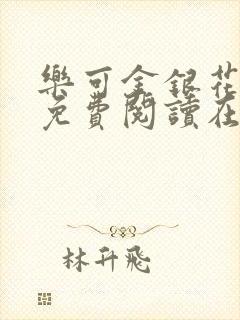 樂可金銀花
免費閱讀在
林升飛